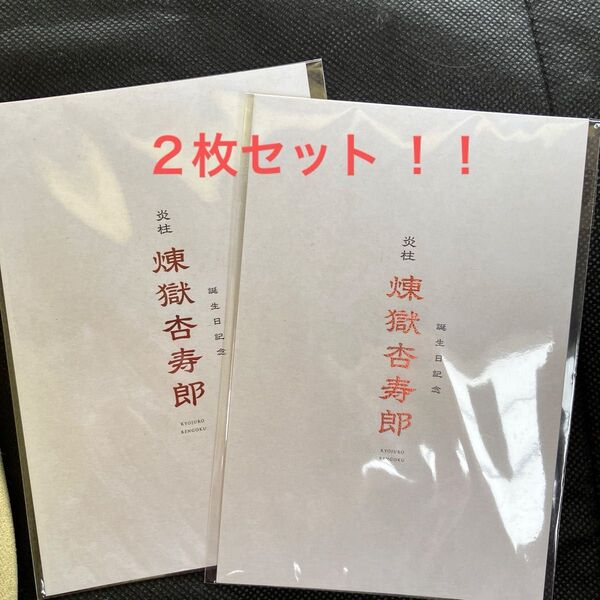 ２枚セット！！
炎柱
煉獄杏寿郎
誕生日記念
KYOJURO
RENGOKU
炎柱
煉獄杏寿郎
誕生日記念
KYOJURO
RENGOKU